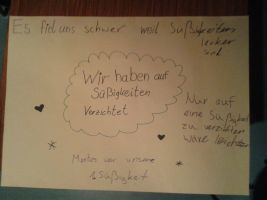 Es fiel uns schwer weil Süßigkeiten
lecker
sind
Wir haben auf
Süßigkeiten
Verzichtet
Nur auf
eine Süßigkeit
zu verzichten
wäre leichter
war unsere
1 Süßigkeit